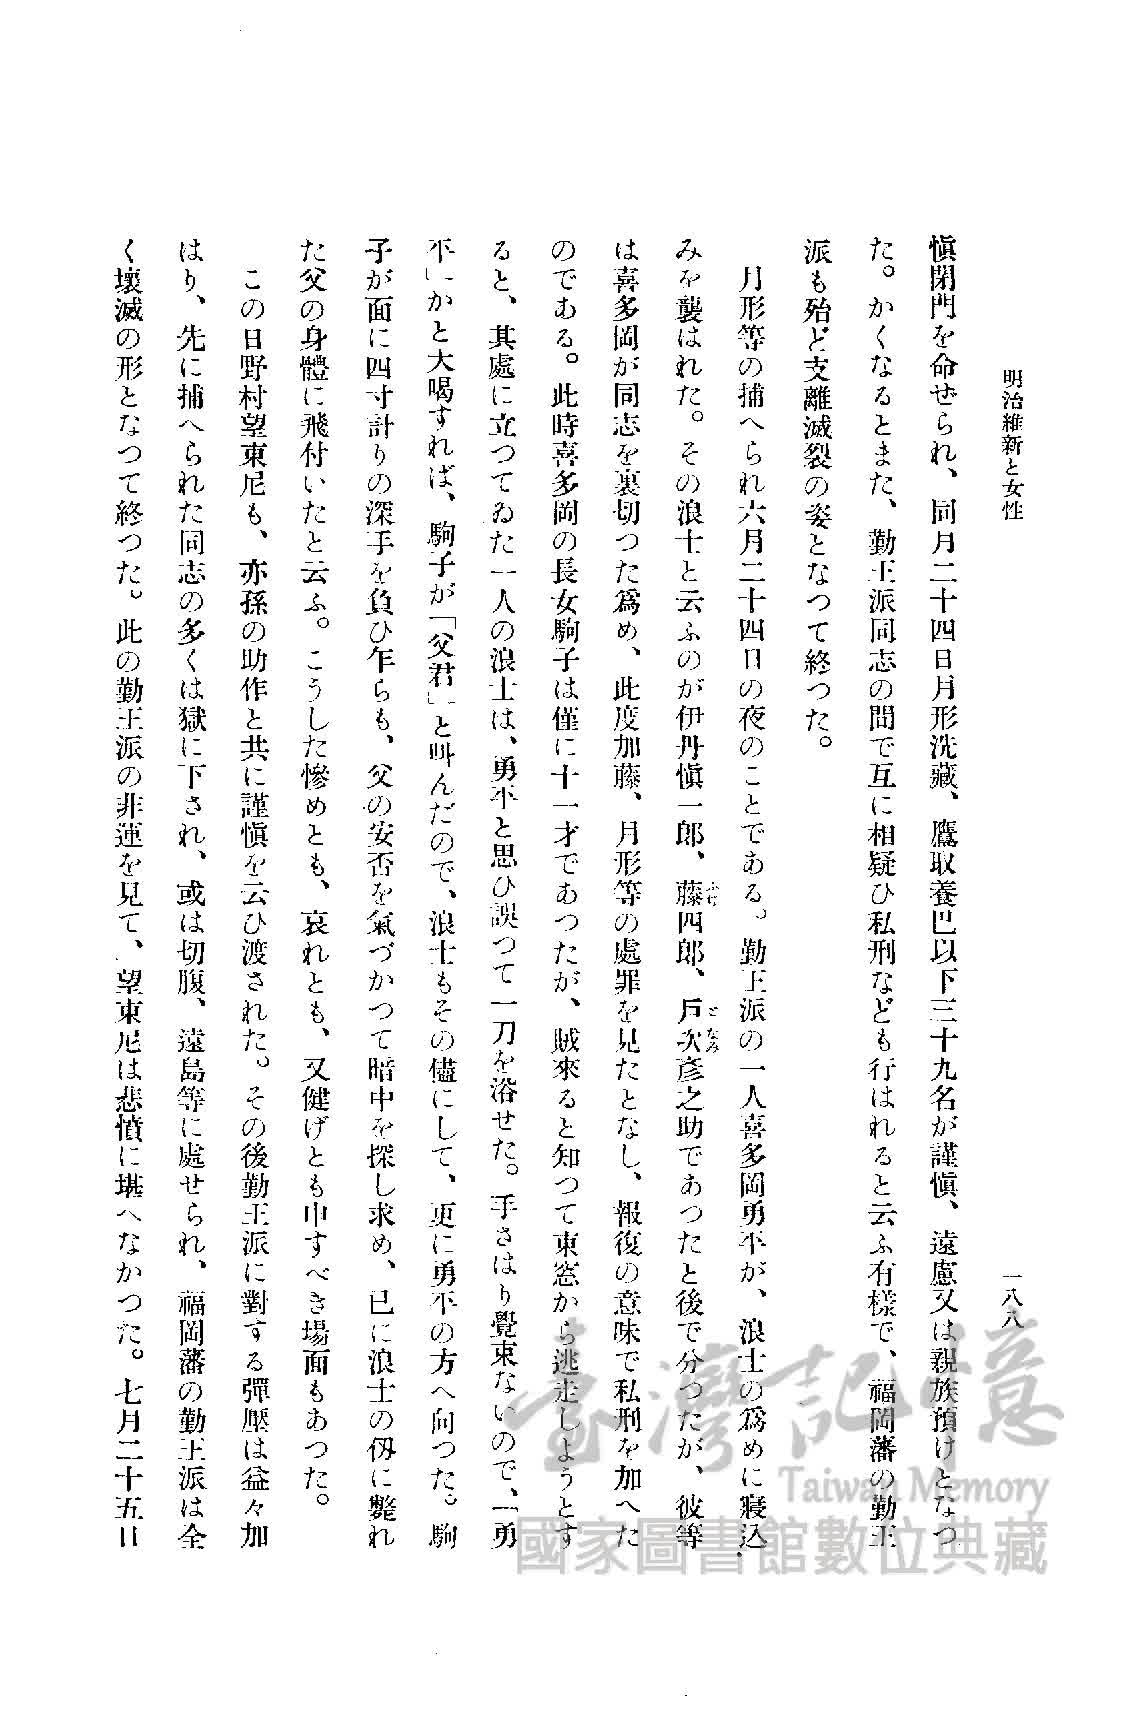 明治維新と女性
一八八
愼閉門を命ぜられ、同月二十四日月形洗藏、鷹取養巴以下三十九名が謹愼、遠慮又は親族預けとなつ
た。かくなるとまた、勤王派同志の間で互に相疑ひ私刑なども行はれると云ふ有樣で、福岡藩の勤王
派も殆ど支離滅裂の姿となつて終つた。
月形等の捕へられ六月二十四日の夜のことである。勤王派の一人喜多岡勇平が、浪士の爲めに寢込
みを襲はれた。その浪士と云ふのが伊丹愼一郎、藤四郎、戸次彦之助であつたと後で分つたが、彼等
は喜多岡が同志を裏切つた爲め、此度加藤、月形等の處罪を見たとなし、報復の意味で私刑を加へた
のである。此時喜多岡の長女駒子は僅に十一才であつたが、賊來ると知つて東窓から逃走しようとす
ると、其處に立つてゐた一人の浪士は、勇平と思ひ誤つて一刀を浴せた。手さはり覺束ないので、「勇
平」かと大喝すれば、駒子が「父君」と叫んだので、浪士もその儘にして、更に勇平の方へ向つた。駒
子が面に四寸計りの深手を負ひ乍らも、父の安否を氣づかつて暗中を探し求め、已に浪士の刄に斃れ
た父の身體に飛付いたと云ふ。こうした慘めとも、哀れとも、又健げとも申すべき場面もあつた。
この日野村望東尼も、亦孫の助作と共に謹愼を云ひ渡された。その後勤王派に對する彈壓は益々加
はり、先に捕へられた同志の多くは獄に下され、或は切腹、遠島等に處せられ、福岡藩の勤王派は全
く壞滅の形となつて終つた。此の勤王派の非運を見て、望東尼は悲憤に堪へなかつた。七月二十五日
臺灣記憶
Taiwan Memory
國家圖書館數位典藏